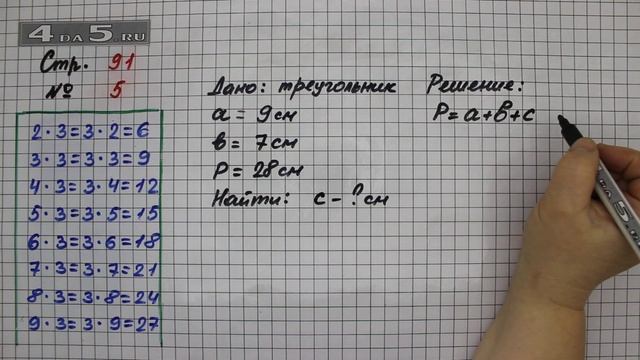 4DA5.RU
Стр. 91
№ 5
2·3=3·2=6
3·3=3·3=9
4·3=3·4=12
5·3=3·5=15
6·3=3·6=18
7·3=3·7=21
8·3=3·8=24
9·3=3·9=27
Дано: треугольник
a = 9 см
в = 7 см
P = 28 см
Найти: c - ? см
Решение:
P = a + в + c
DA5.RU